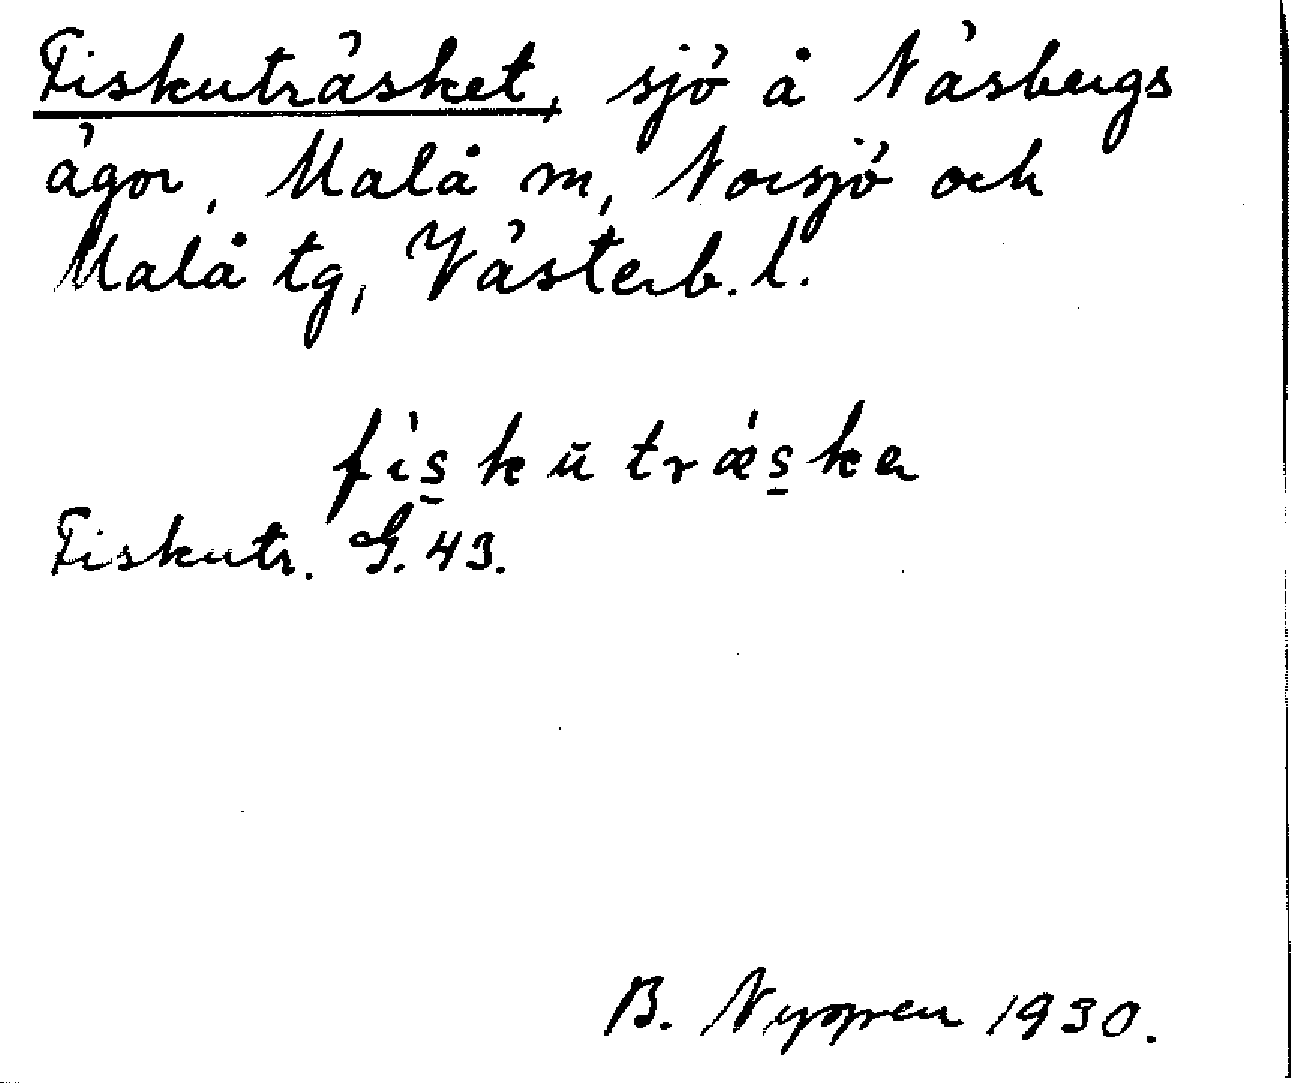 Fiskuträsket, sjö å Näsbergs
ägor, Malå m, Norsjö och
Malå tg, Västerb. l.
fìs̠kūtrǽs̠kə
Fiskutr. G. 43.
B. Nyppen 1930.